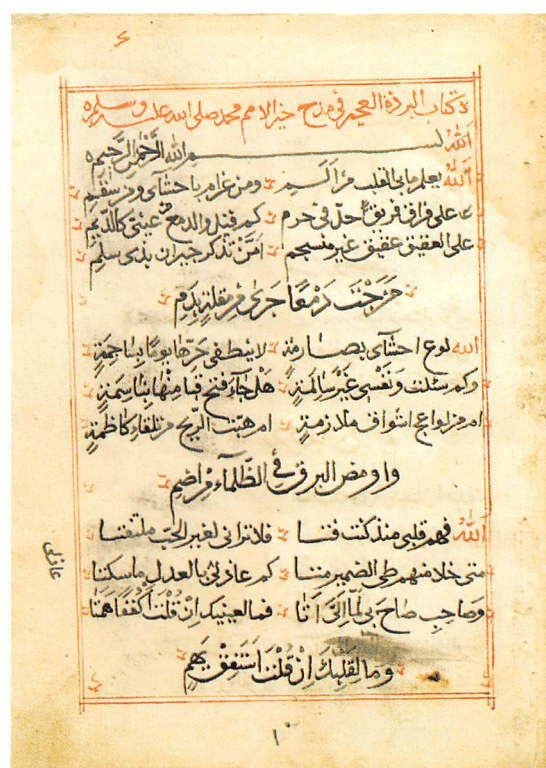 كتاب البردة العجيم في مدح خير الامم محمد صلى الله عليه وسلم
بسم الله الرحمن الرحيم
الله يعلم ما بي القلب من الم ومن غرام باحشاى ومن سقم
على فراق فريق حل في حرم كم قتيل والدمع عيني كالديم
على العقيق عقيق غير منسجم امن تذكر جيران بذى سلم
مزجت دمعا جرى من مقلة بدم
الله لوع احشاى بصارمة لا ينطفى حرها يوما
وكم سئلت ونفسى غير سالمة هل جاء فتح
ام من لواعج اشواق ملازمة ام هبت الريح من تلقاء كاظمة
واومض البرق في الظلماء من اضم
الله فهم قلبى منذ كنت فتا فلا ترانى لغير الحب ملتفتا
متى خلا منهم طى الضمير متا كم عاذل بالعدل ما سكتا
وصاحب صاح بى لما الى اتا فما لعينيك ان قلت اكففا همتا
وما لقلبك ان قلت استفق يهم
عاذلى